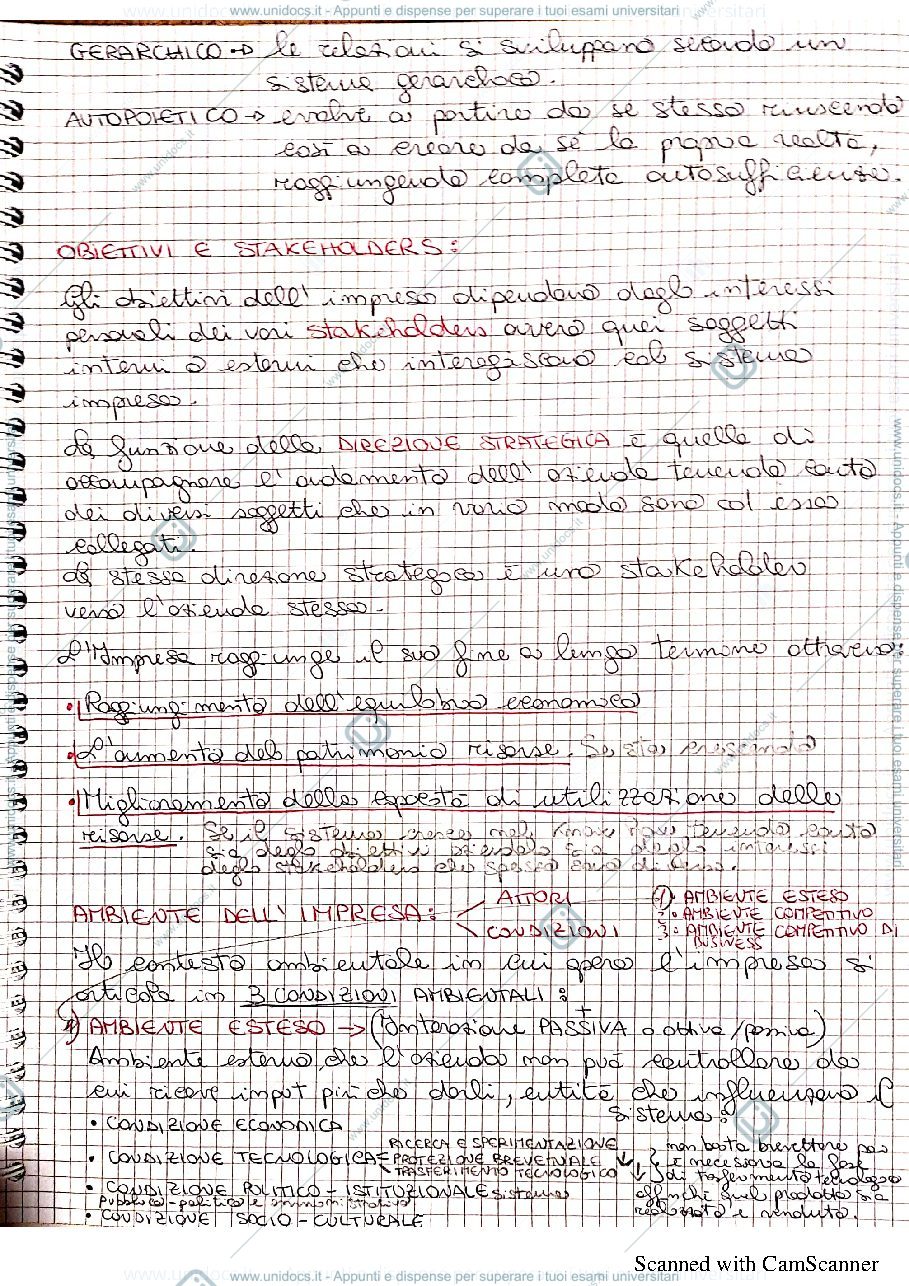 www.unidocs.it - Appunti e dispense per superare i tuoi esami universitari
GERARCHICO → le relazioni si sviluppano secondo un
sistema gerarchico.
AUTOPOIETICO → evolve a partire da se stesso riuscendo
così a creare da sé la propria realtà,
raggiungendo completa autosufficienza.
OBIETTIVI E STAKEHOLDERS:
Gli obiettivi dell'impresa dipendono dagli interessi
personali dei vari stakeholders ovvero quei soggetti
interni o esterni che interagiscono col sistema
impresa.
La funzione della DIREZIONE STRATEGICA è quella di
accompagnare l'andamento dell'azienda tenendo conto
dei diversi soggetti che in vario modo sono ad essa
collegati.
La stessa direzione strategica è uno stakeholder
verso l'azienda stessa.
L'Impresa raggiunge il suo fine a lungo termine attraverso:
• Raggiungimento dell'equilibrio economico
• L'aumento del patrimonio risorse. Se sta crescendo
• Miglioramento della capacità di utilizzazione delle
risorse. Se il sistema cresce tenendo conto
sia degli obiettivi aziendali sia degli interessi
degli stakeholders che spesso sono diversi.
AMBIENTE DELL'IMPRESA: ATTORI
CONDIZIONI
1. AMBIENTE ESTESO
2. AMBIENTE COMPETITIVO
3. AMBIENTE COMPETITIVO DI
BUSINESS
Il contesto ambientale in cui opera l'impresa si
articola in 3 CONDIZIONI AMBIENTALI:
1) AMBIENTE ESTESO → (Interazione PASSIVA o attiva/passiva)
Ambiente esterno, che l'azienda non può controllare da
cui riceve input più che darli, entità che influenzano il
sistema:
• CONDIZIONE ECONOMICA
• CONDIZIONE TECNOLOGICA = RICERCA E SPERIMENTAZIONE
PROTEZIONE BREVETTUALE
TRASFERIMENTO TECNOLOGICO
non basta brevettare poi
è necessaria la fase
di trasferimento tecnologico
affinché sul prodotto sia
realizzato e venduto.
• CONDIZIONE POLITICO - ISTITUZIONALE sistema
pubblico-politico e amministrativo
• CONDIZIONE SOCIO - CULTURALE
Scanned with CamScanner
www.unidocs.it - Appunti e dispense per superare i tuoi esami universitari